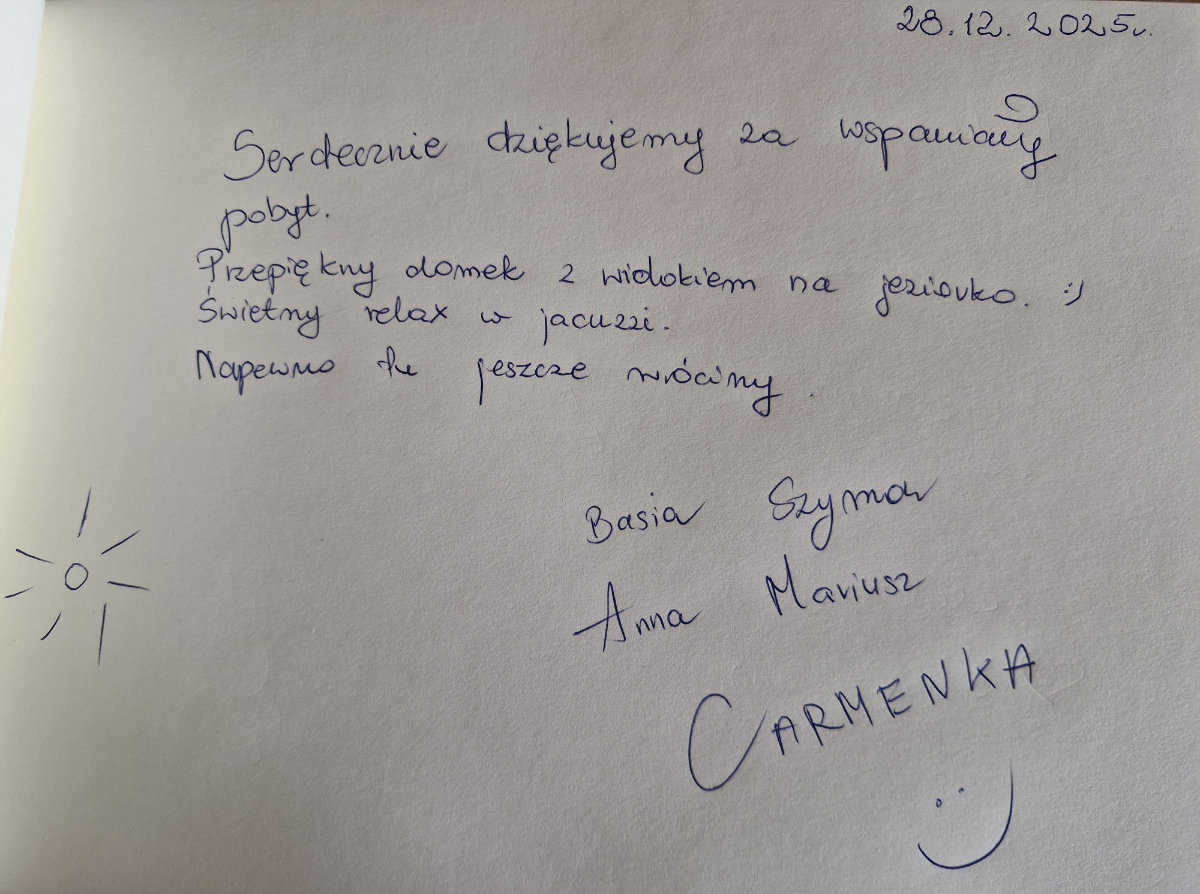 28.12.2025r.
Serdecznie dziękujemy za wspaniały
pobyt.
Przepiękny domek z widokiem na jeziorko. :)
Świetny relax w jacuzzi.
Napewno tu jeszcze wrócimy.
Basia Szymon
Anna Mariusz
CARMENKA